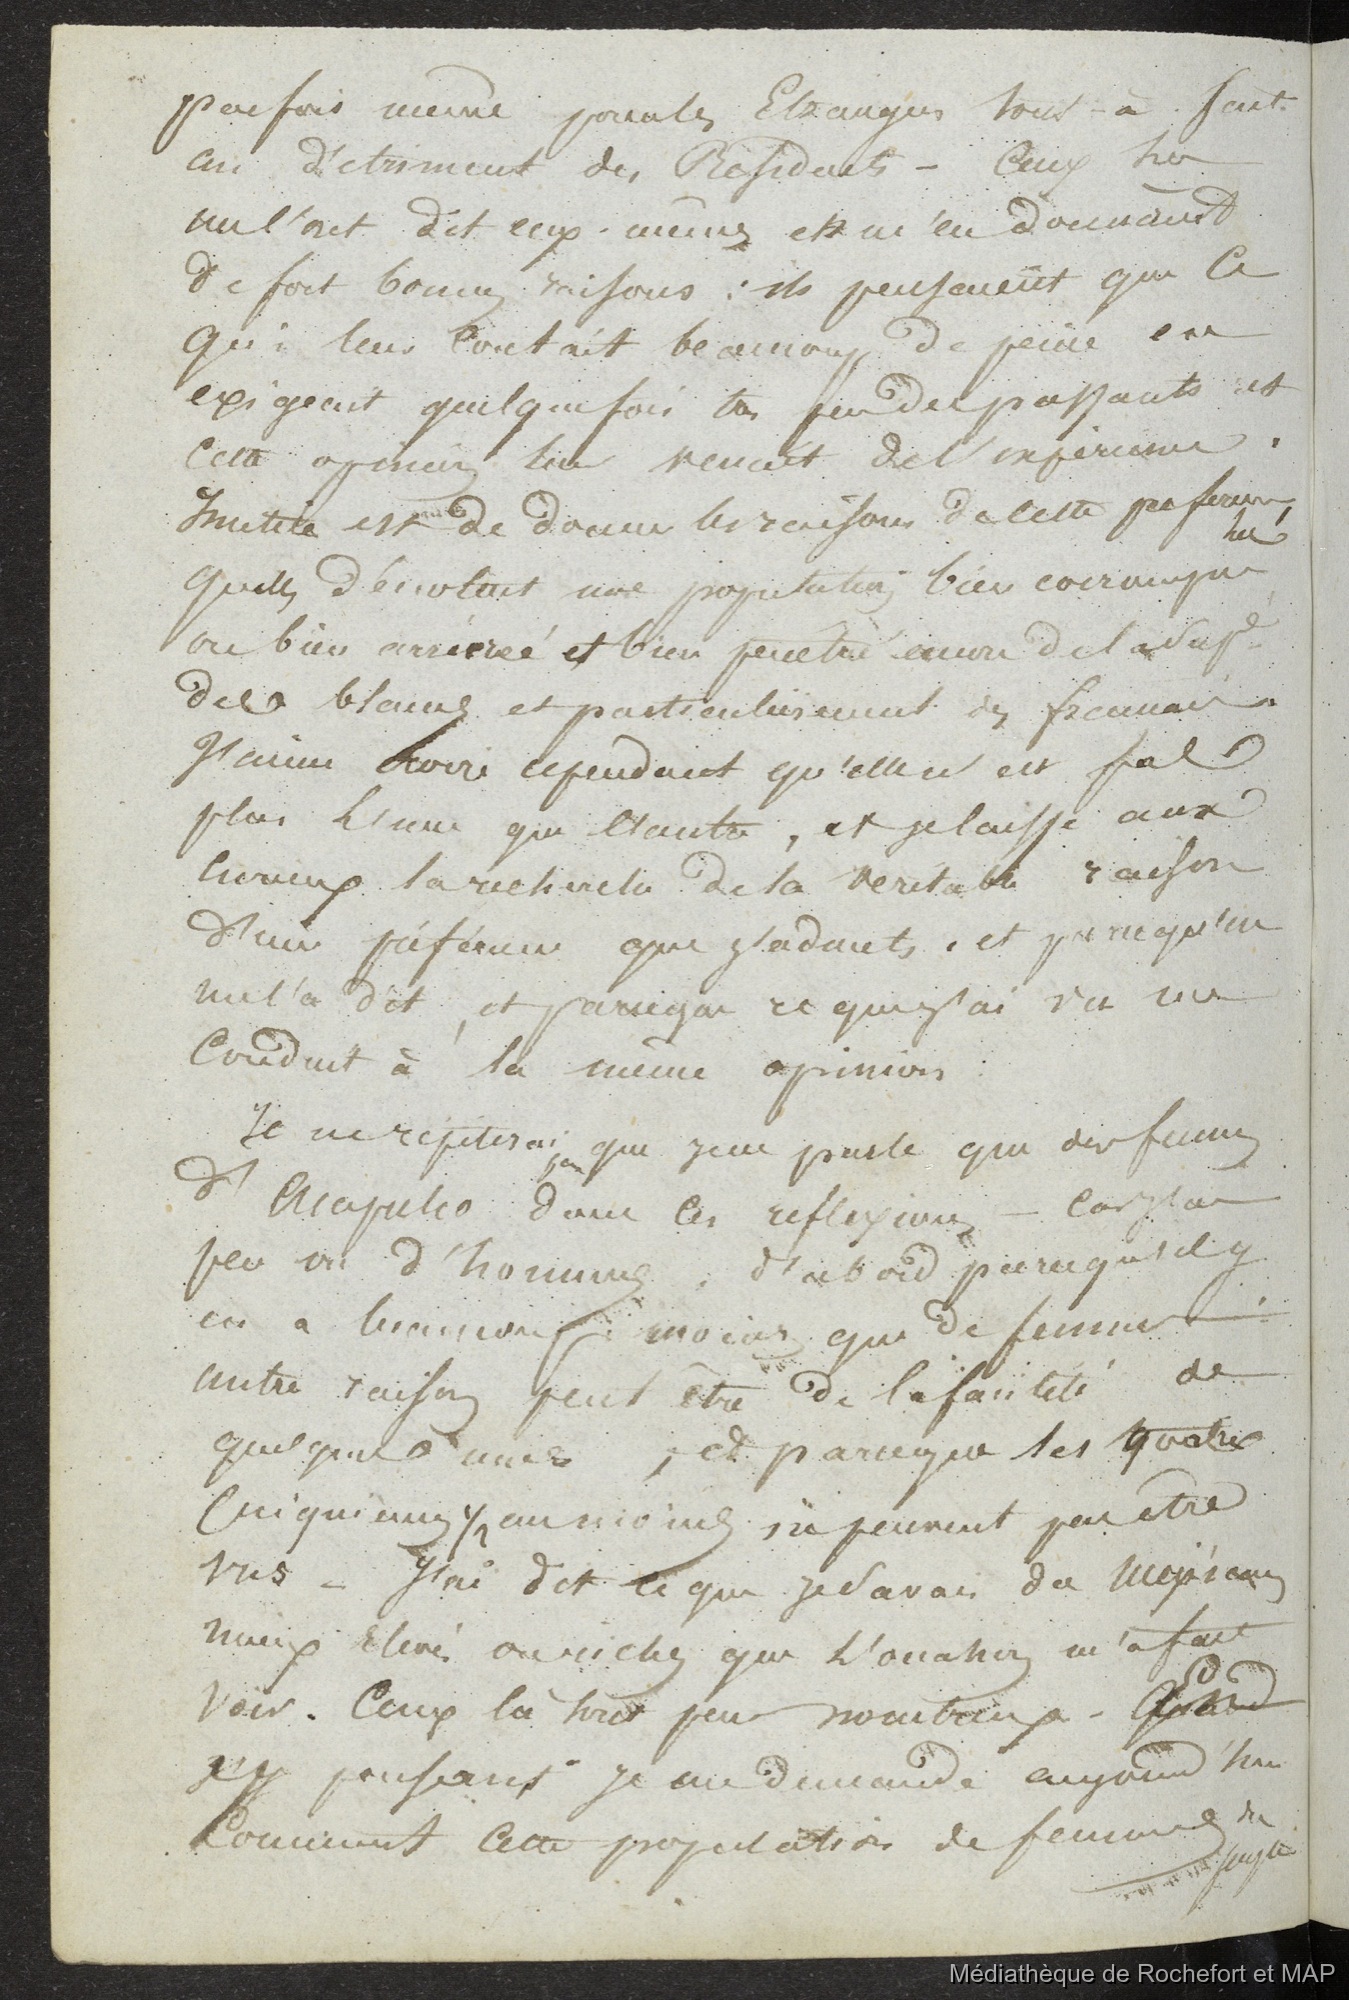 parfois même pour les Etrangers tout-à-fait
au d'etriment des Résidents - Ceux ha
me l'ont dit eux-mêmes et m'en donnaient
de fort bonnes raisons : ils pensaient que ce
qui leur Contait beaucoup de peine en
exigeait quelquefois tres peu des passants et
cette opinion leur venait de l'expérience.
Inutile est de donner les raisons de cette preference,
quelles dénotent une population bien corrompue
ou bien arriérée et bien penétré encore de la Supé
des blancs et particulièrement des français.
J'aime croire cependant qu'elle n'est pas
plus l'une que l'autre, et je laisse aux
curieux la recherche de la veritable raison
d'une préférence que j'admets, et parcequ'on
me l'a dit, et parceque ce que j'ai vu me
Conduit à la même opinion.
Je ne répéterai pas que je ne parle que des femmes
d'Acapulco dans ces reflexions - Car j'ai
peu vu d'hommes, d'abord parcequ'il y
en a beaucoup moins que de femmes
autre raison peut être de la facilité de
quelques unes, et parceque les quatre
Cinquièmes 1/2 au moins ne peuvent pas être
vus - J'ai dit ce que je savais du Mexicains
mieux élevés ou riches que l'occasion m'a fait
voir. Ceux là sont peu nombreux - Quand
j'y pensais je me demande aujourd'hui
Comment cette population de femmes du
peuple